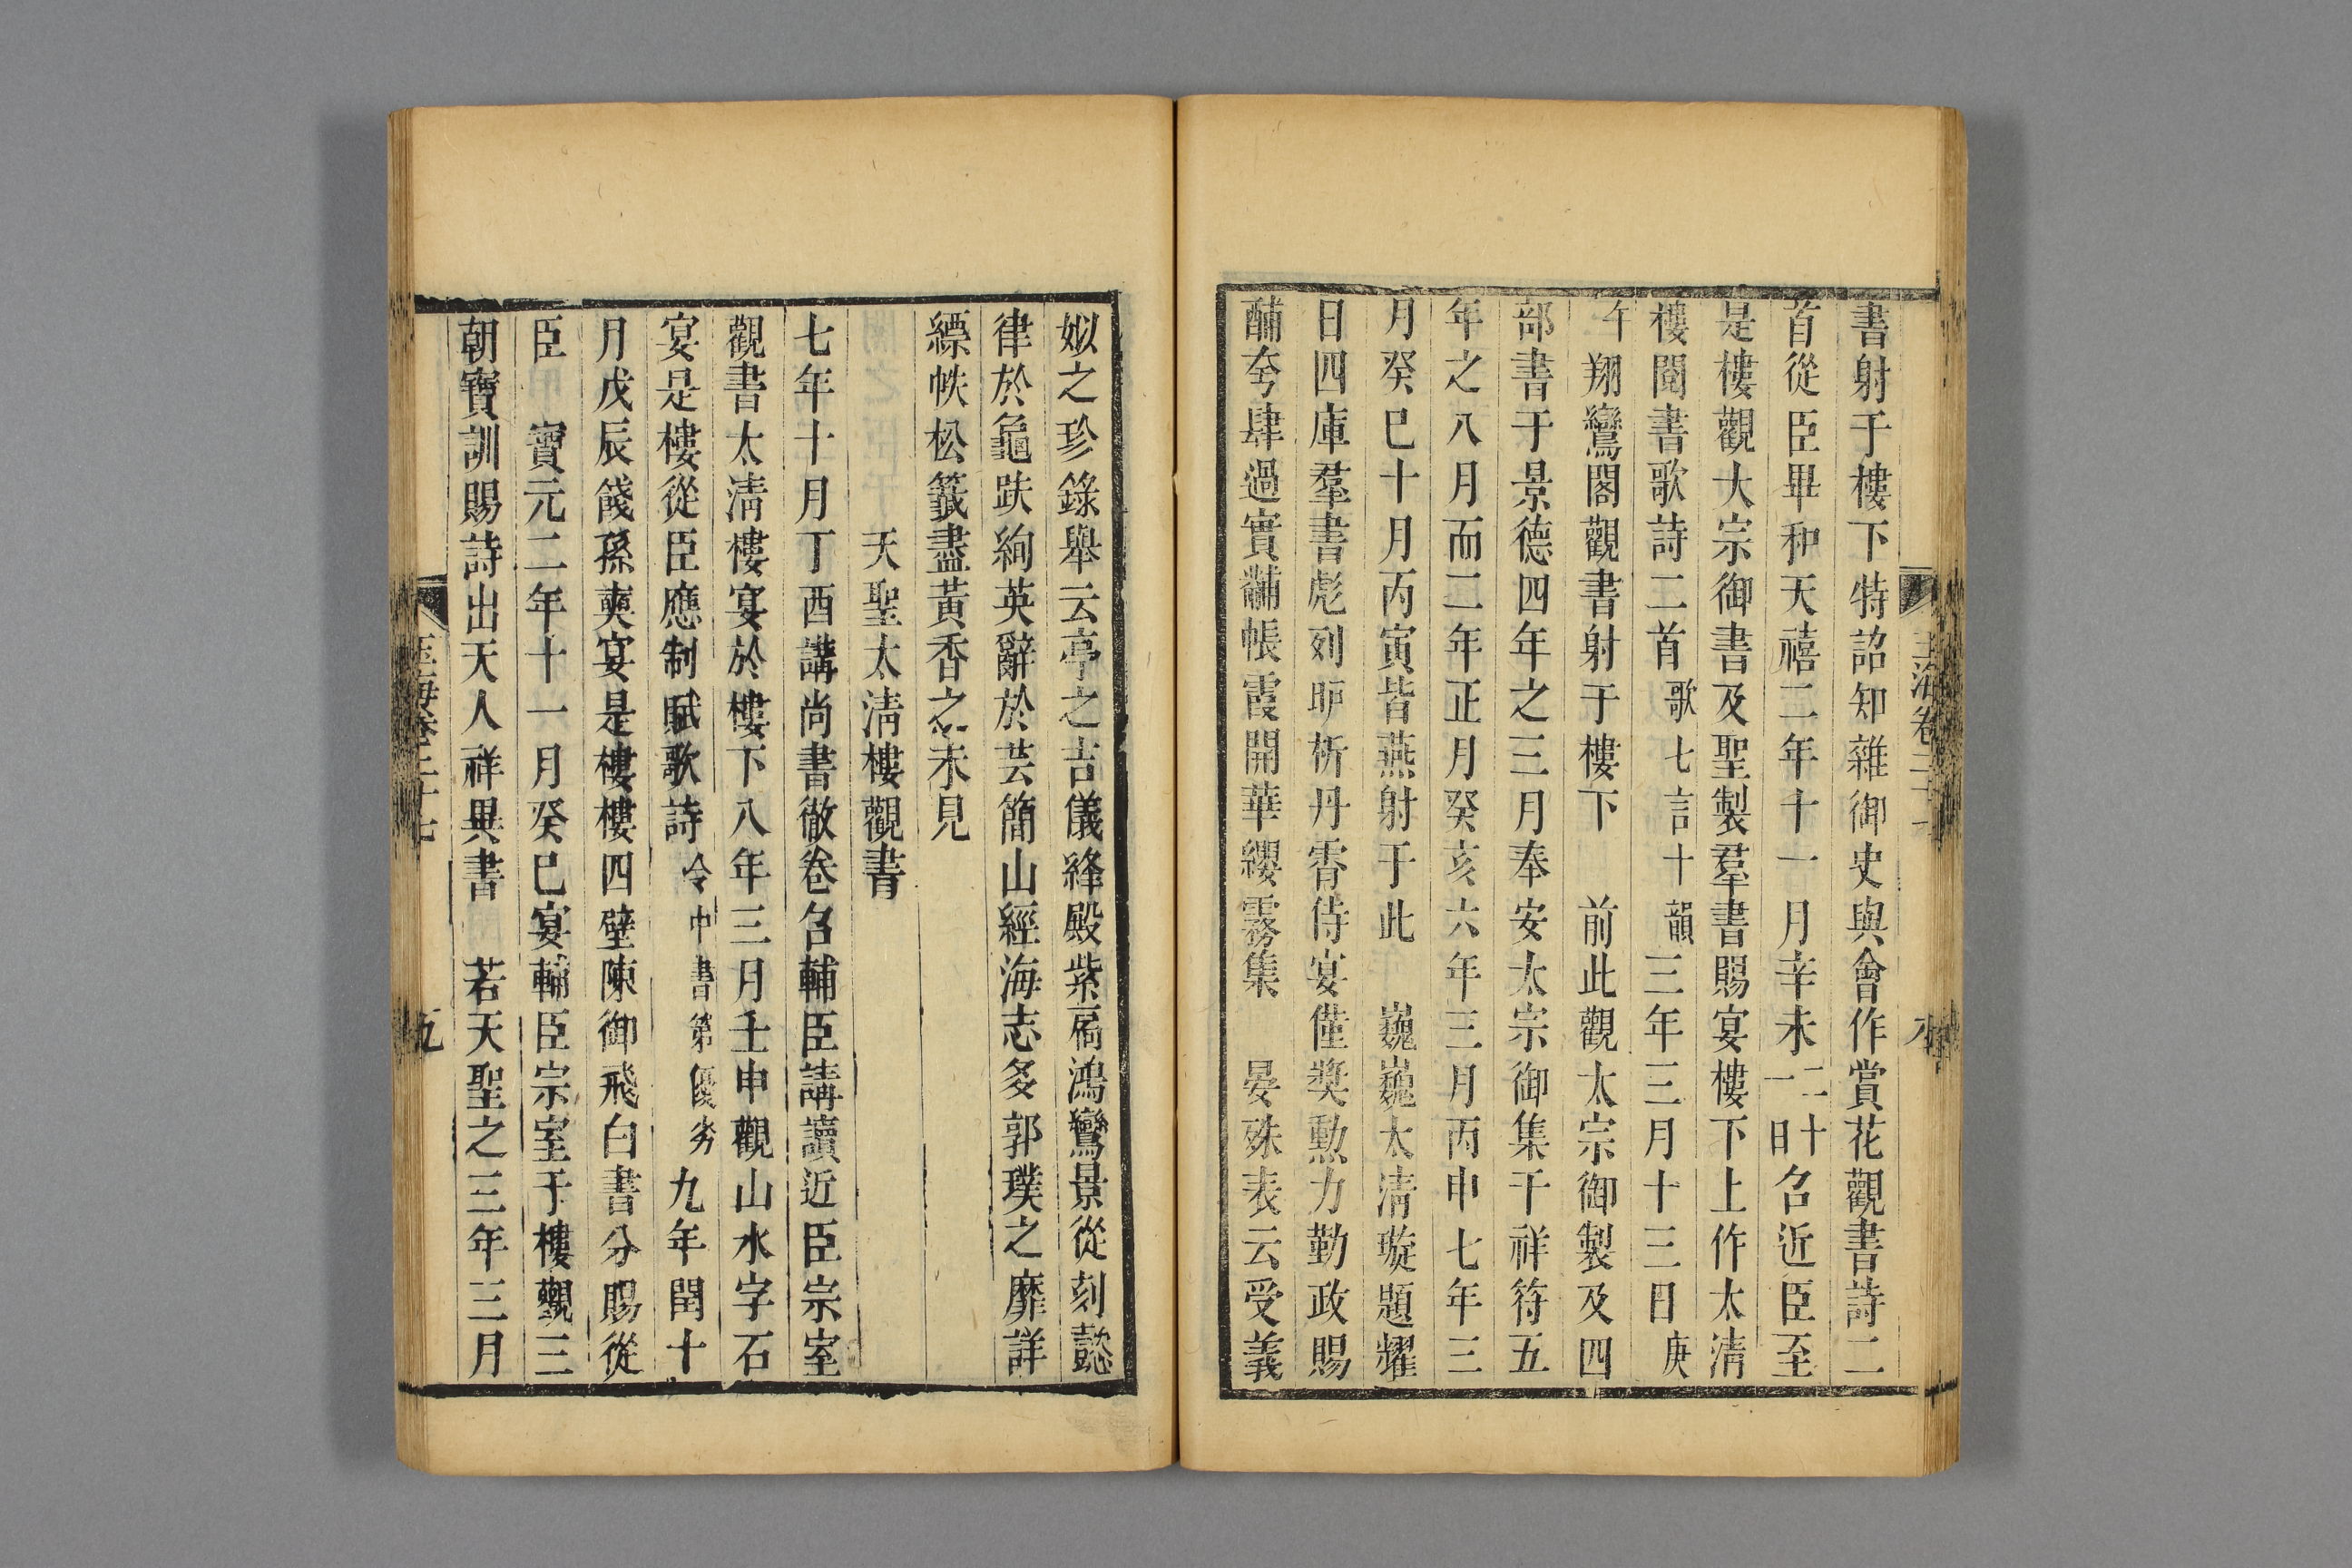 書射于樓下特詔知雜御史與會作賞花觀書詩二
首從臣畢和天禧二年十一月辛未二十一日召近臣至
是樓觀太宗御書及聖製羣書賜宴樓下上作太清
樓閱書歌詩二首歌七言十韻三年三月十三日庚
午翔鸞閣觀書射于樓下 前此觀太宗御製及四
部書于景德四年之三月奉安太宗御集于祥符五
年之八月而二年正月癸亥六年三月丙申七年三
月癸巳十月丙寅皆燕射于此 巍巍太清璇題耀
日四庫羣書彪列昈析丹霄侍宴僅奬勲力勤政賜
酺夸肆過實黼帳霞開華纓霧集 晏殊表云受義
姒之珍錄舉云亭之吉儀絳殿紫鴻鸞景從刻懿
律於龜趺絢英辭於芸簡山經海志多郭璞之靡詳
縹帙松籖盡黃香之未見
天聖太清樓觀書
七年十月丁酉講尚書徹卷召輔臣講讀近臣宗室
觀書太清樓宴於樓下八年三月壬申觀山水字石
宴是樓從臣應制賦歌詩令中書第優劣九年閏十
月戊辰餞孫奭宴是樓樓四壁陳御飛白書分賜從
臣 寶元二年十一月癸巳宴輔臣宗室于樓觀三
朝寶訓賜詩出天人祥異書 若天聖之三年三月
玉海卷二十七
五